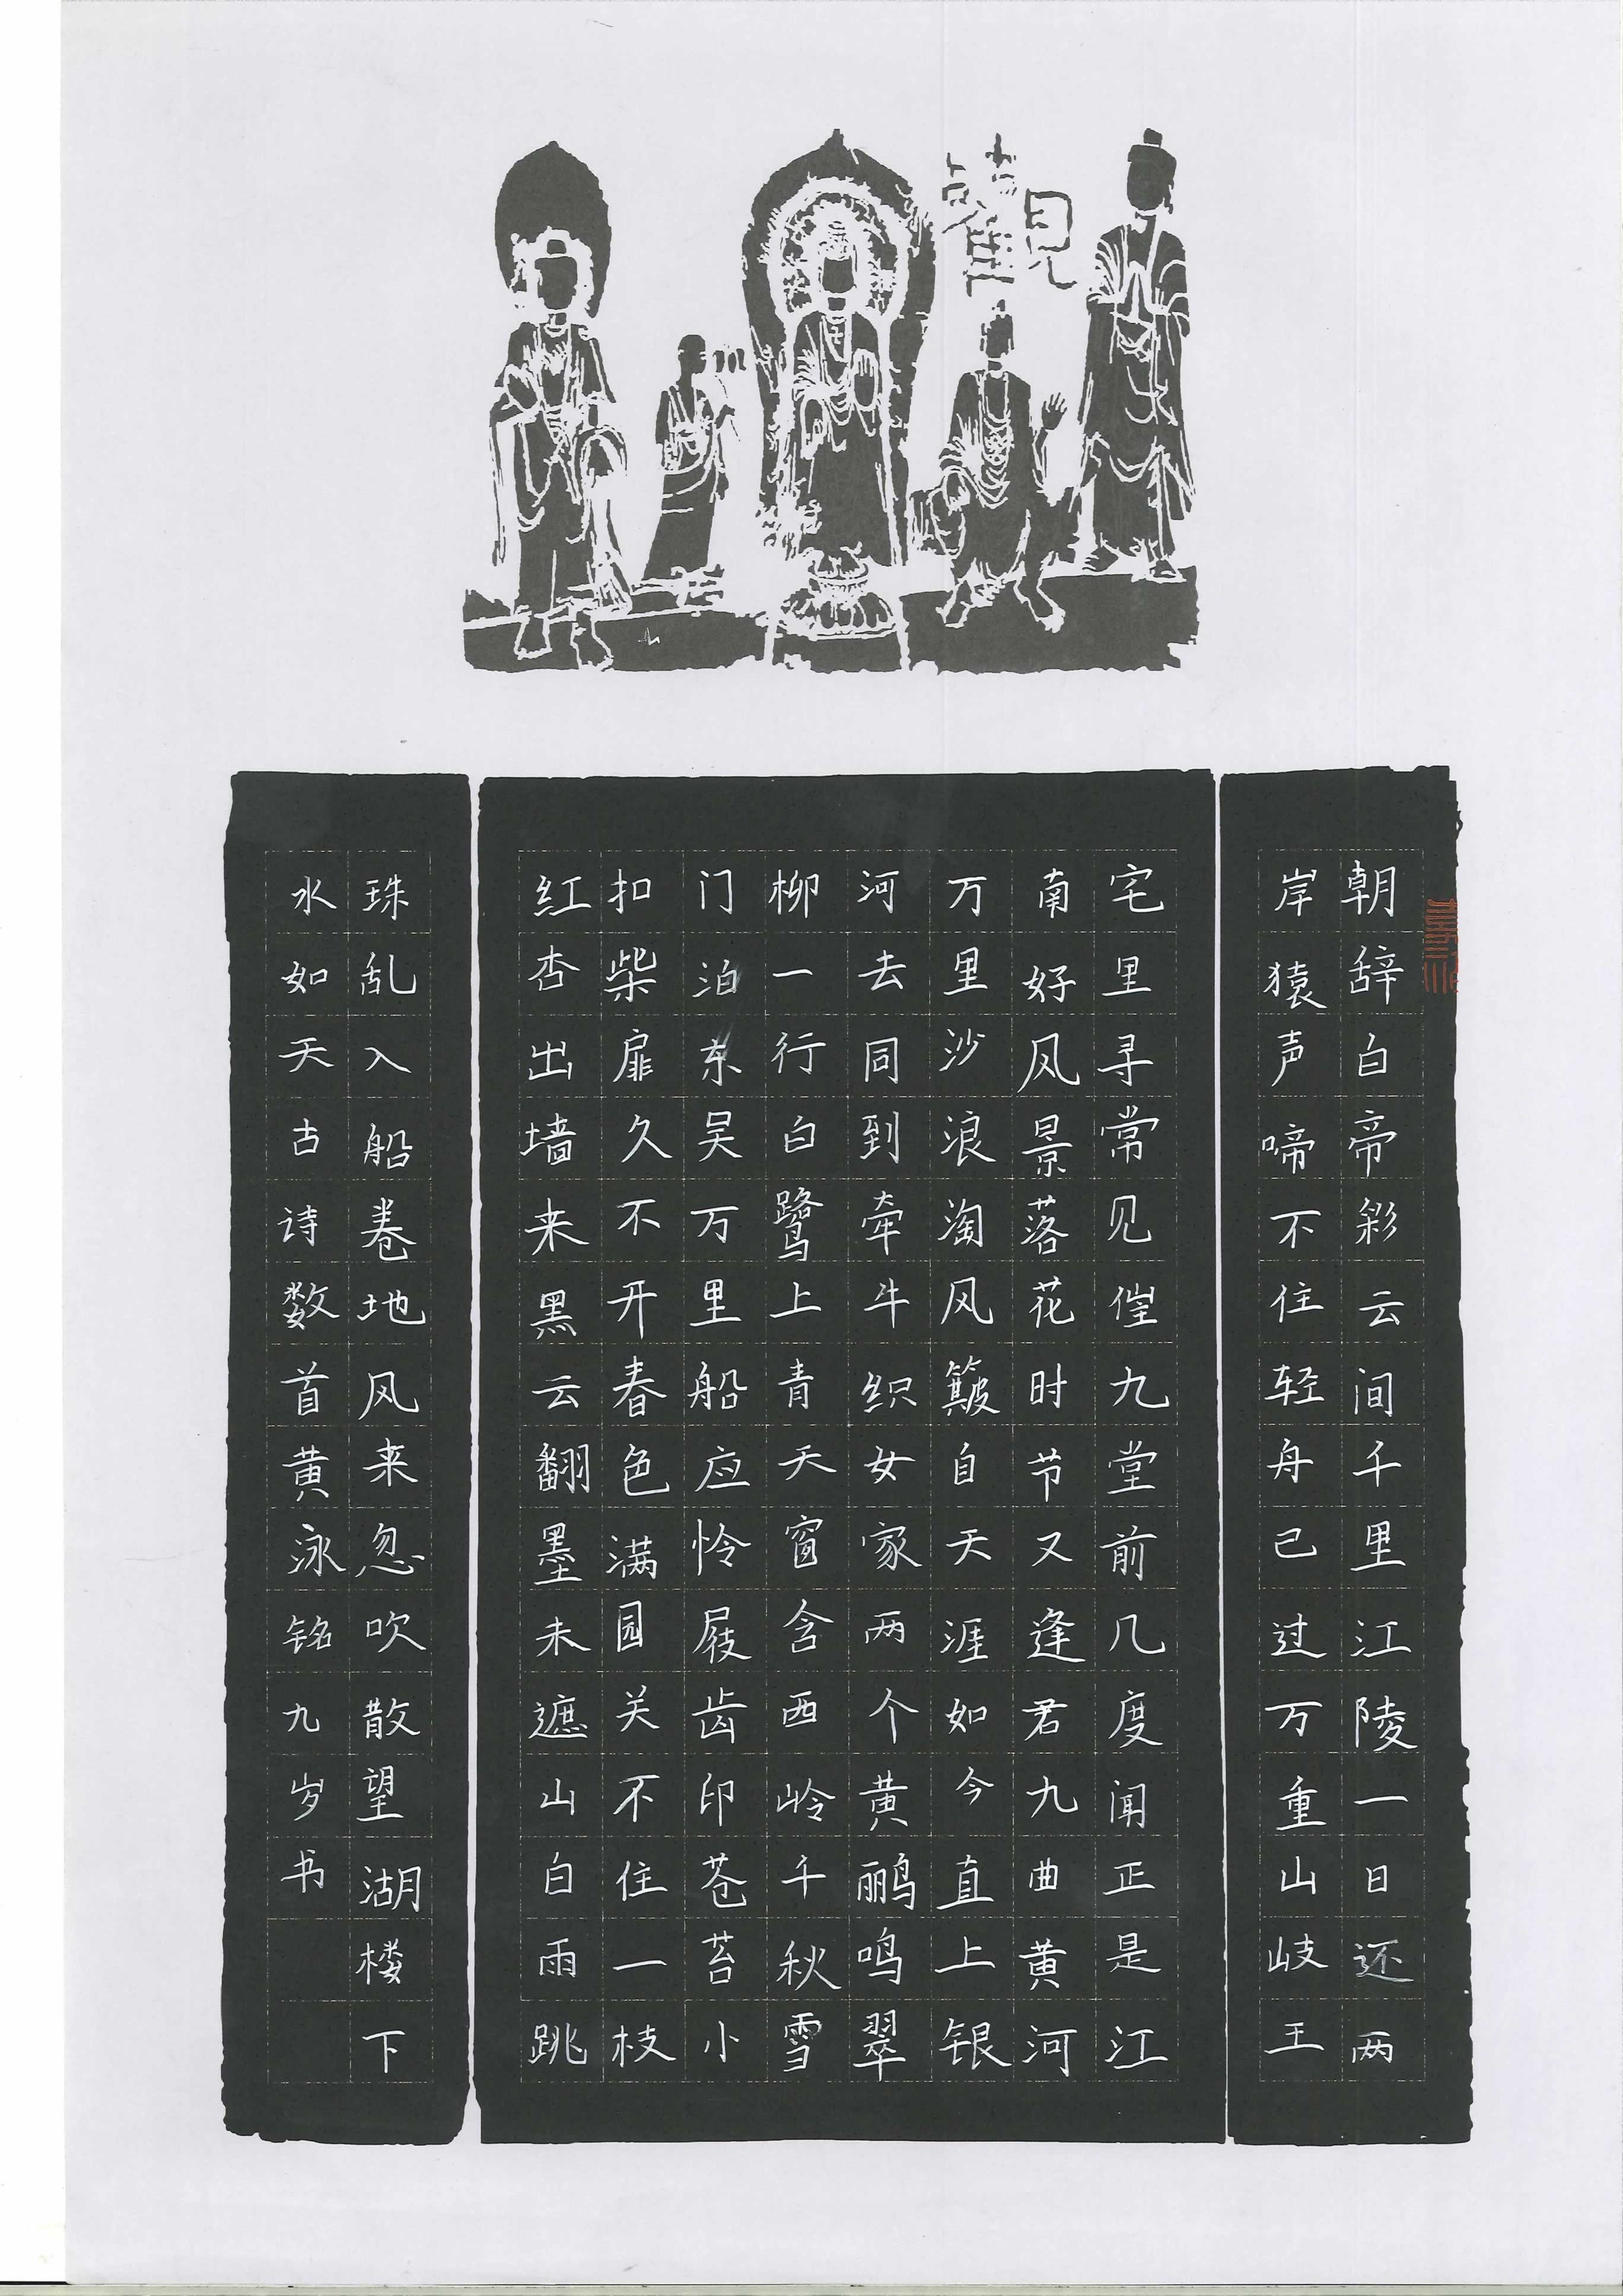 觀
朝辞白帝彩云间千里江陵一日还两
岸猿声啼不住轻舟已过万重山岐王
宅里寻常见催九堂前几度闻正是江
南好风景落花时节又逢君九曲黄河
万里沙浪淘风簸自天涯如今直上银
河去同到牵牛织女家两个黄鹂鸣翠
柳一行白鹭上青天窗含西岭千秋雪
门泊东吴万里船应怜屐齿印苍苔小
扣柴扉久不开春色满园关不住一枝
红杏出墙来黑云翻墨未遮山白雨跳
珠乱入船卷地风来忽吹散望湖楼下
水如天古诗数首黄泳铭九岁书